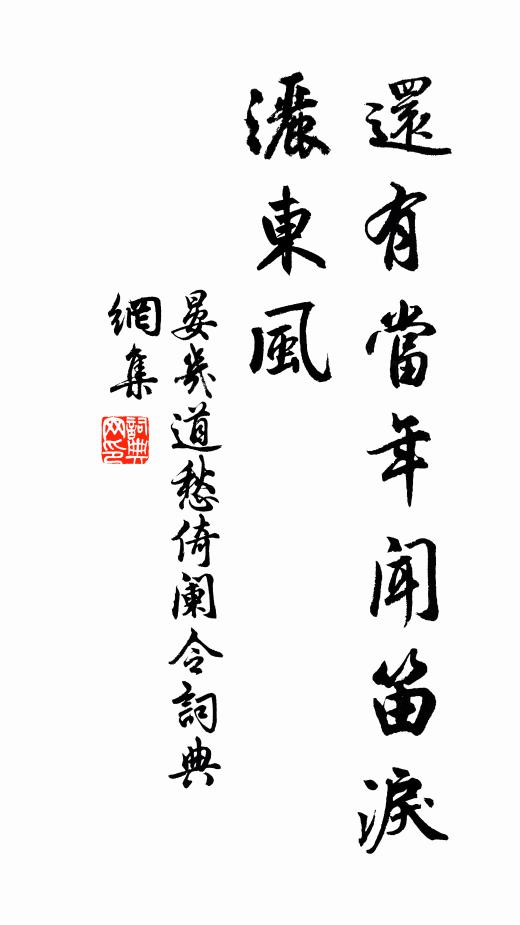 還有當年聞笛淚
灑東風
晏幾道愁倚阑令詞典
網集
詞典
网印